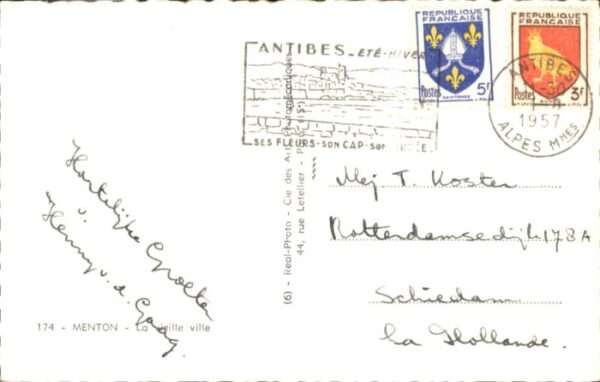 ANTIBES - ÉTÉ - HIVER
SES FLEURS - SON CAP - SON
REPUBLIQUE FRANÇAISE
Postes 5F
REPUBLIQUE FRANÇAISE
Postes 3F
ANTIBES
1957
ALPES MMES
Hartelijke Groeten
v.
Henny v. d. Graag.
Mej T. Koster
Rotterdamsedijk 178A
Schiedam
La Hollande.
(6) - Real-Photo - Cie des Arts
44, rue Letellier -
174 - MENTON - La vieille ville